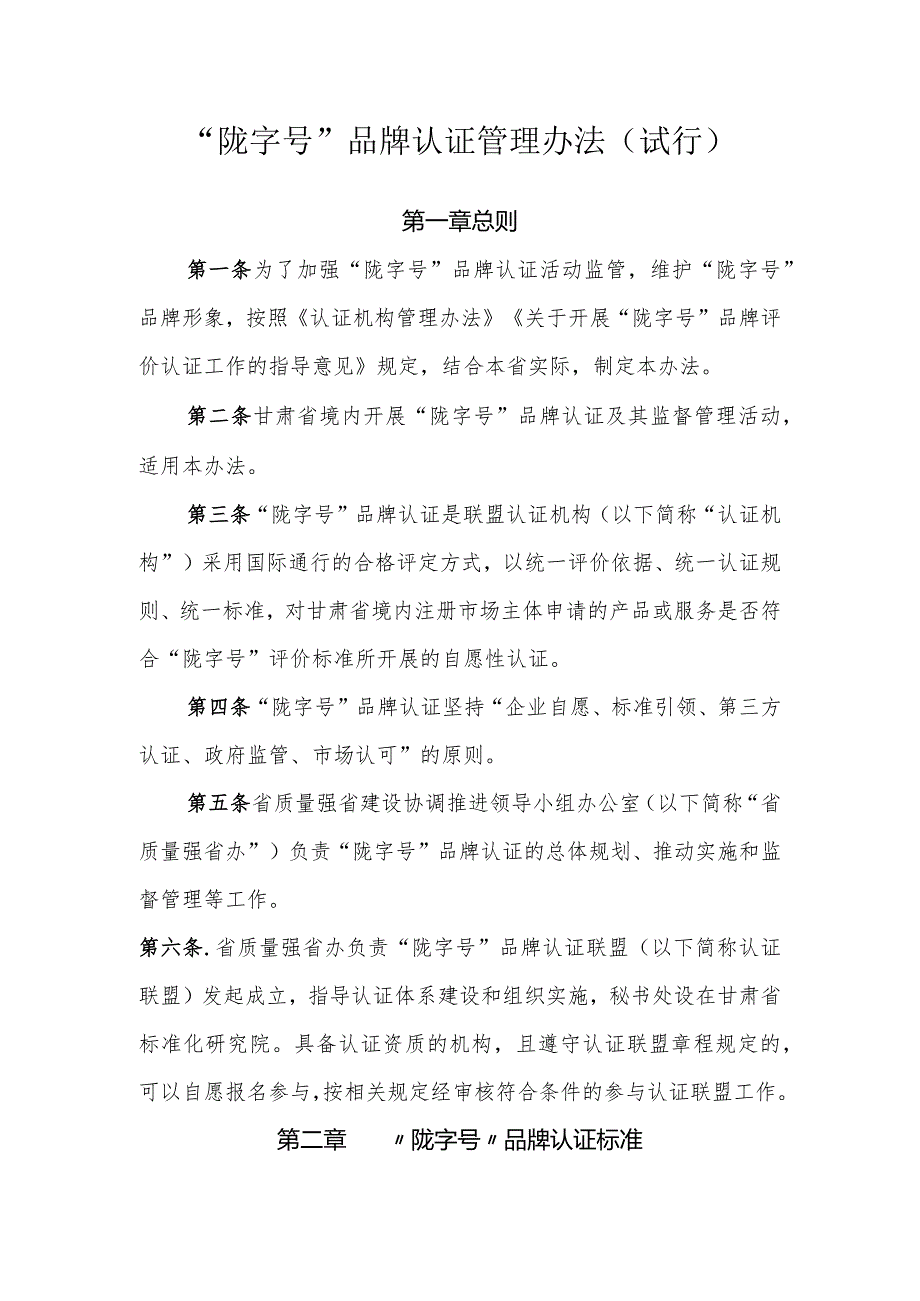 “陇字号”品牌认证管理办法（试行）
第一章总则
第一条为了加强“陇字号”品牌认证活动监管，维护“陇字号”
品牌形象，按照《认证机构管理办法》《关于开展“陇字号”品牌评
价认证工作的指导意见》规定，结合本省实际，制定本办法。
第二条甘肃省境内开展“陇字号”品牌认证及其监督管理活动，
适用本办法。
第三条“陇字号”品牌认证是联盟认证机构（以下简称“认证机
构”）采用国际通行的合格评定方式，以统一评价依据、统一认证规
则、统一标准，对甘肃省境内注册市场主体申请的产品或服务是否符
合“陇字号”评价标准所开展的自愿性认证。
第四条“陇字号”品牌认证坚持“企业自愿、标准引领、第三方
认证、政府监管、市场认可”的原则。
第五条省质量强省建设协调推进领导小组办公室（以下简称“省
质量强省办”）负责“陇字号”品牌认证的总体规划、推动实施和监
督管理等工作。
第六条.省质量强省办负责“陇字号”品牌认证联盟（以下简称认证
联盟）发起成立，指导认证体系建设和组织实施，秘书处设在甘肃省
标准化研究院。具备认证资质的机构，且遵守认证联盟章程规定的，
可以自愿报名参与，按相关规定经审核符合条件的参与认证联盟工作。
第二章 〃陇字号〃品牌认证标准